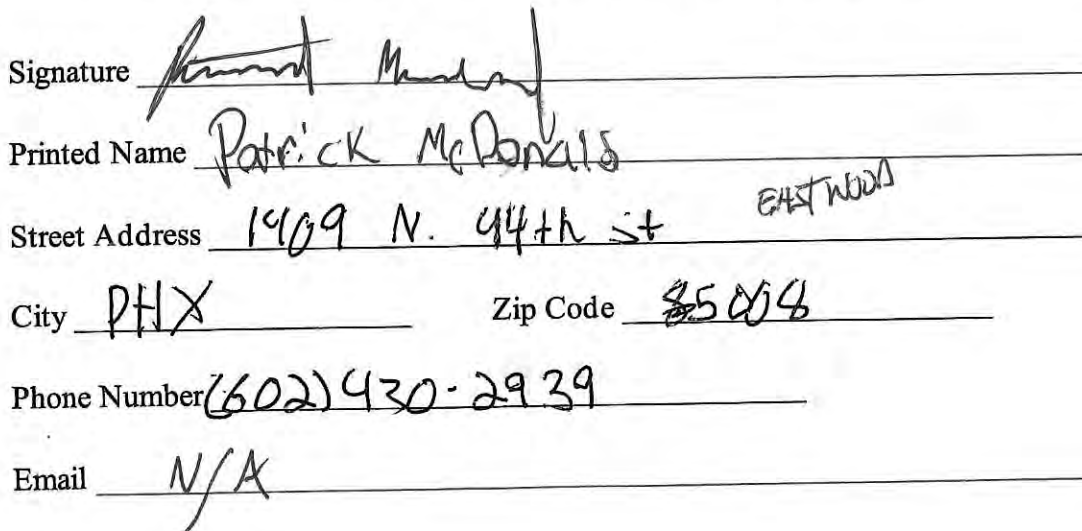 Signature
Printed Name Patrick McDonald
Street Address 1409 N. 44th st EASTWOOD
City PHX Zip Code 85008
Phone Number (602) 430-2939
Email N/A